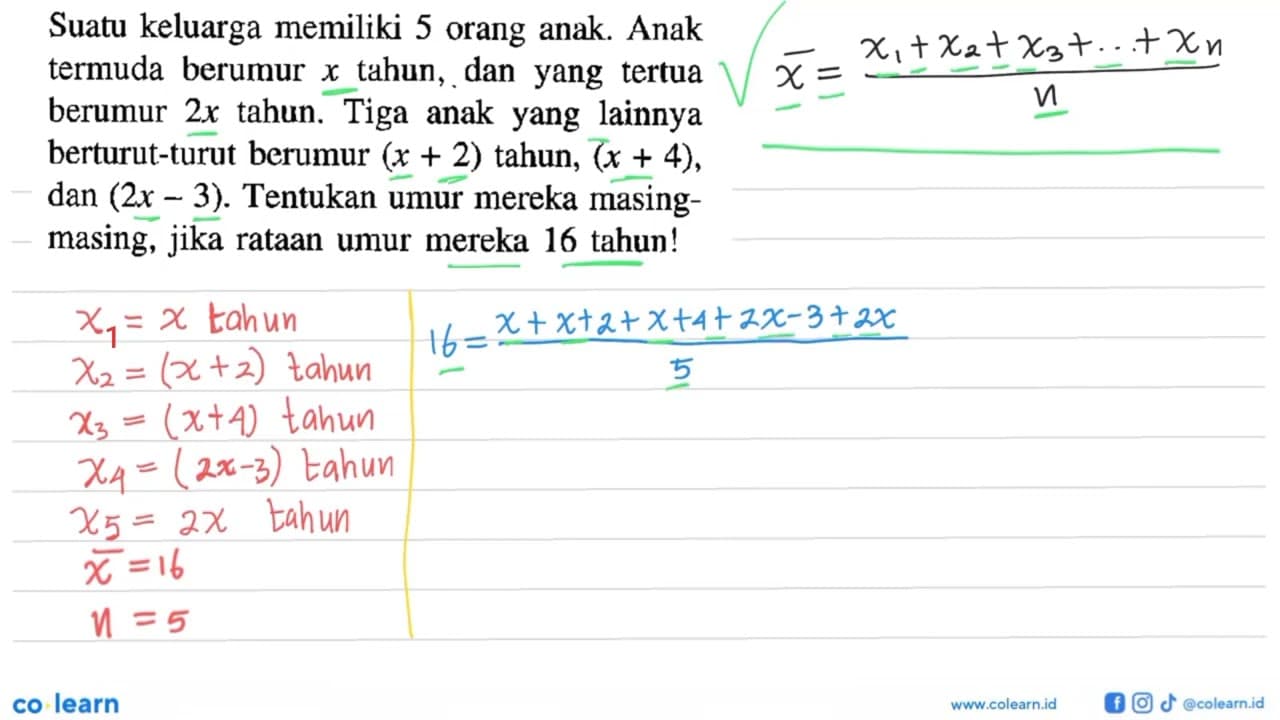 Suatu keluarga memiliki 5 orang anak. Anak
termuda berumur x tahun, dan yang tertua
berumur 2x tahun. Tiga anak yang lainnya
berturut-turut berumur (x + 2) tahun, (x + 4),
dan (2x – 3). Tentukan umur mereka masing-
masing, jika rataan umur mereka 16 tahun!
√ x̄ = (x₁ + x₂ + x₃ + ... + xₙ) / n
x₁ = x tahun
x₂ = (x+2) tahun
x₃ = (x+4) tahun
x₄ = (2x-3) tahun
x₅ = 2x tahun
x̄ = 16
n = 5
16 = (x + x+2 + x+4 + 2x-3 + 2x) / 5
co learn
www.colearn.id
@colearn.id